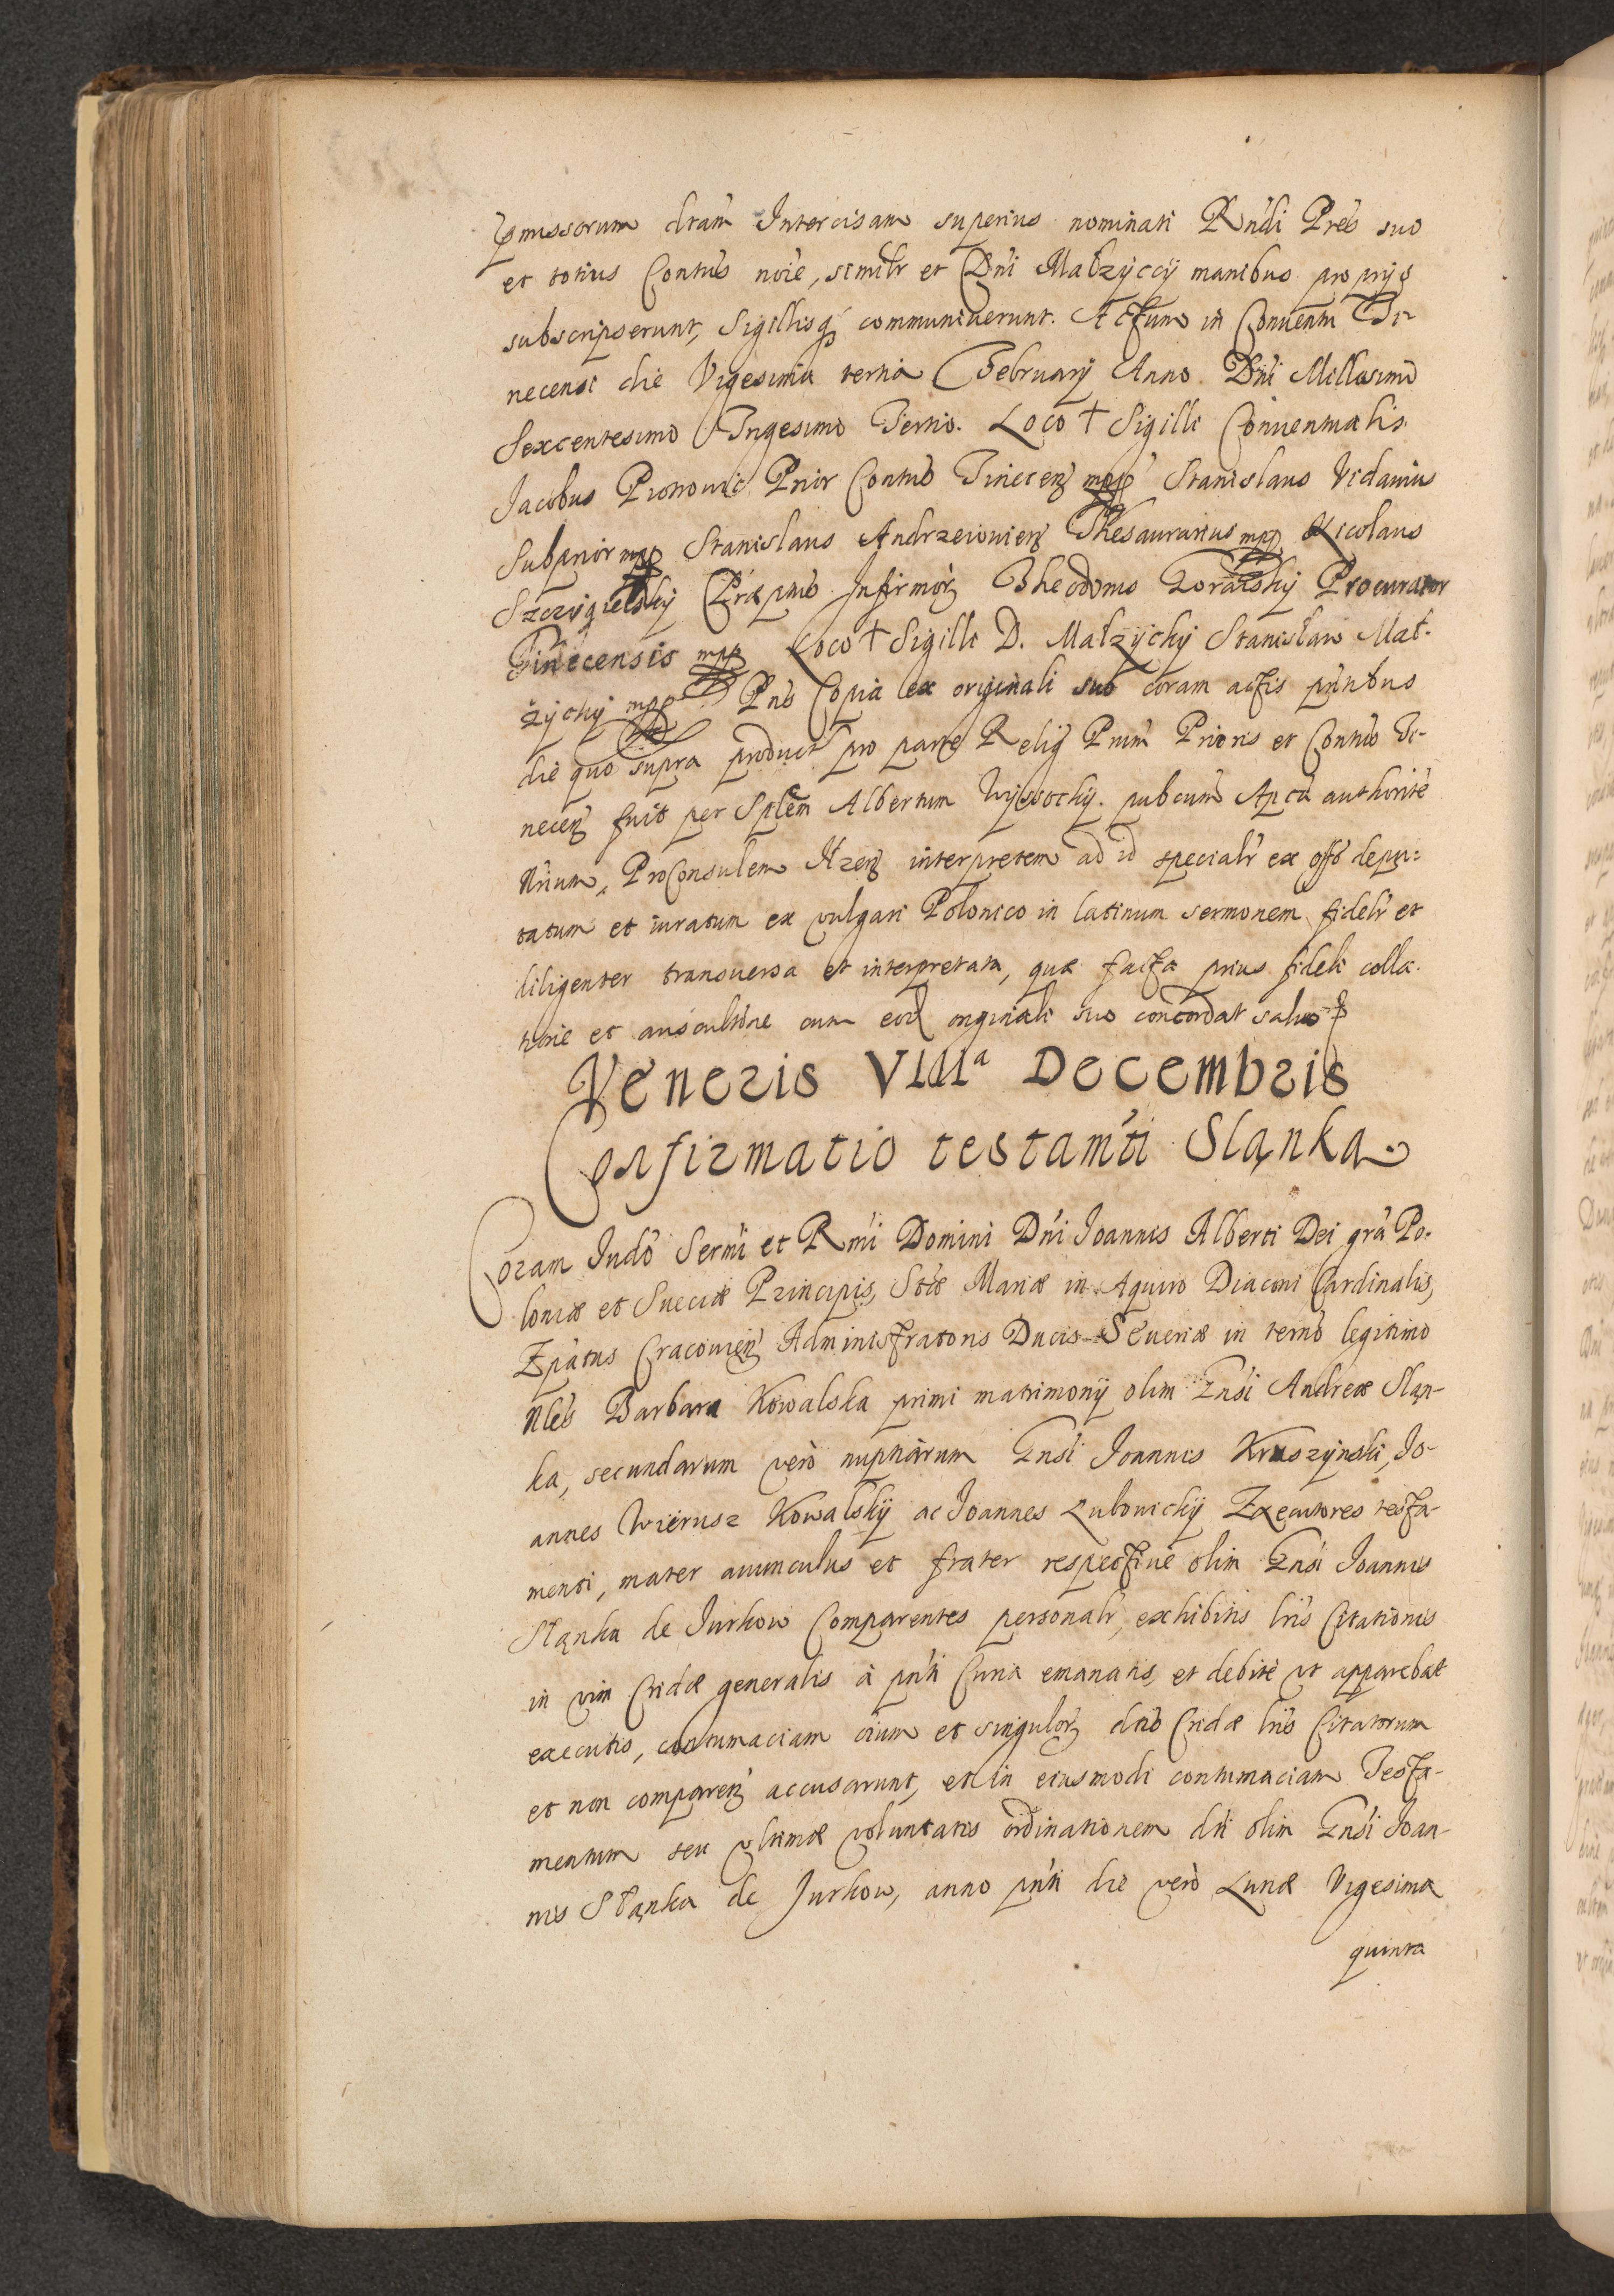 pmissorum dtam Intercisam superius nominati Rndi Pres suo
et totius Contus noie, similr et Dni Małzyccy manibus proprijs
subscripserunt, Sigillisq communiuerunt. Actum in Conuentu Ti-
necensi die Vigesima tertia February Anno Dni Millesimo
Sexcentesimo Trigesimo Tertio. Loco † Sigilli Conuentualis.
Jacobus Piotrowic Prior Contus Tinecen mpp Stanislaus Vidavius
Subprior mpp Stanislaus Andrzeiowien Thesaurarius mpp Nicolaus
Szczygielsky Præptus Infirmor Theodorus Goralsky Procurator
Tinecensis mpp Loco † Sigilli D. Małzychy Stanisław Mał-
żychy mpp Pns Copia ex originali suo coram actis pntibus
die quo supra product pro parte Relig Prum Prioris et Contus Ti-
necen fuit per Splem Albertum Wyssochy. pubcum Apca authorite
Nrium, ProConsulem Ilzen interpretem ad id specialr ex offo depu:
tatum et iuratum ex vulgari Polonico in latinum sermonem fidelr et
diligenter transuersa et interpretata, quæ facta prius fideli colla-
tione et auscultone cum eod originali suo concordat saluo
Veneris VIIIIa Decembris
Confirmatio testamti Sląnka.
Coram Indo Sermi et Rmi Domini Dni Joannis Alberti Dei gra Po-
loniæ et Sueciæ Principis, Stæ Mariæ in Aquiro Diaconi Cardinalis,
Epatus Cracouien Administratoris Ducis Seueriæ in terno legitimo
Nles Barbara Kowalska primi matrimonij olim Gnsi Andreæ Słąn-
ka, secundarum verò nuptiarum Gnsi Joannis Kruszynski, Jo-
annes Wierusz Kowalsky ac Joannes Lubowichy Executores testa-
menti, mater auunculus et frater respectiue olim Gnsi Joannis
Słąnka de Jurkow Comparentes personalr, exhibitis lris Citationis
in vim Cridæ generalis à pnti Curia emanatis, et debitè vt apparebat
executis, contumaciam oium et singulor dtis Cridæ lris Citatorum
et non comparen accusarunt, et in eiusmodi contumaciam Testa-
mentum seu vltimæ voluntatis ordinationem dti olim Gnsi Joan-
nis Słąnka de Jurkow, anno pnti die verò Lunæ Vigesima
quinta